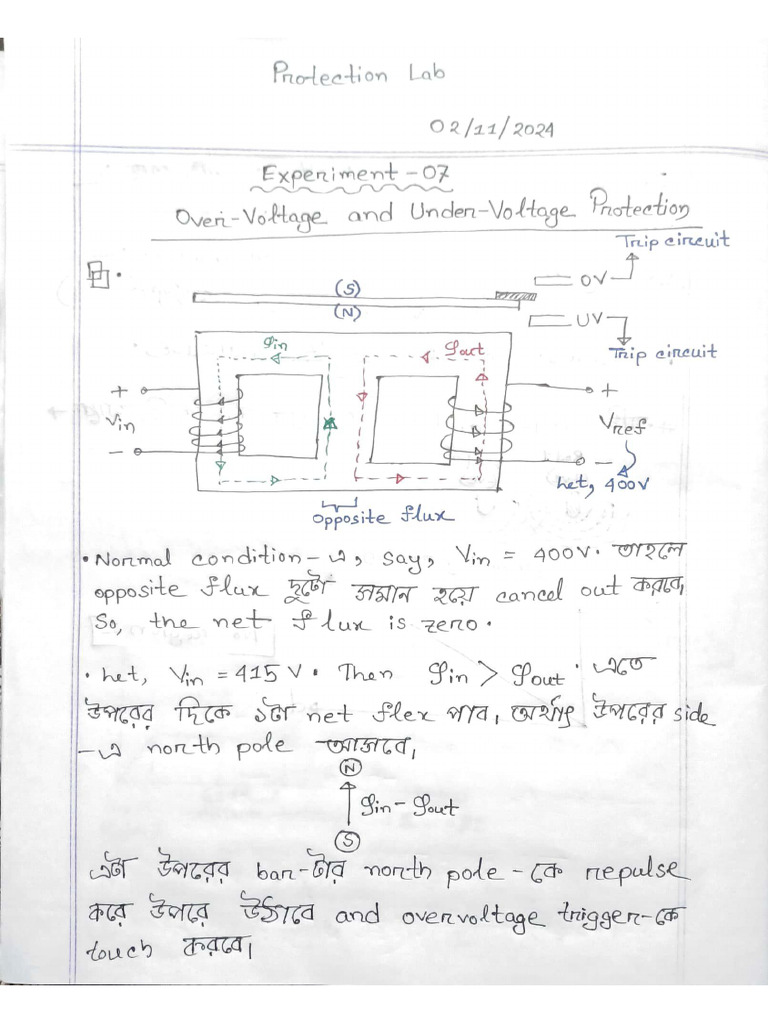 Protection Lab
02/11/2024
Experiment-07
Over-Voltage and Under-Voltage Protection
Trip circuit
OV
(S)
(N)
UV
Trip circuit
φin
φout
+
Vin
-
+
Vref
-
let, 400V
opposite flux
• Normal condition-এ, say, Vin = 400V. তাহলে
opposite flux দুটো সমান হয়ে cancel out করবে,
So, the net flux is zero.
• let, Vin = 415 V. Then φin > φout. এতে
উপরের দিকে ১টা net flex পাব, অর্থাৎ উপরের side
-এ north pole আসবে,
N
φin - φout
S
এটা উপরের bar-টার north pole-কে repulse
করে উপরে উঠাবে and overvoltage trigger-কে
touch করবে।